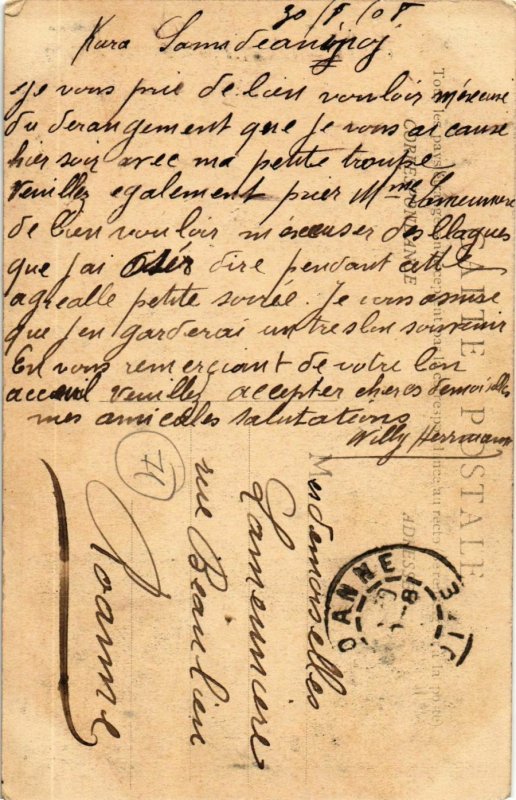 30/8/08
Kara Samideaninoj
Je vous prie de bien vouloir m'excuser
du derangement que je vous ai cause
hier soir avec ma petite troupe
Veuillez egalement prier Mme Lameuniere
de bien vouloir m'excuser des blagues
que j'ai osér dire pendant cette
agreable petite soirée. Je vous assure
que j'en garderai un tres bon souvenir
En vous remerçiant de votre bon
acceuil veuillez accepter cheres demoiselles
mes amicales salutations
Willy Herrmann
71
Mesdemoiselles
Lameuniere
rue Beaulieu
Roanne
CARTE POSTALE
CORRESPONDANCE
ADRESSE
ROANNE